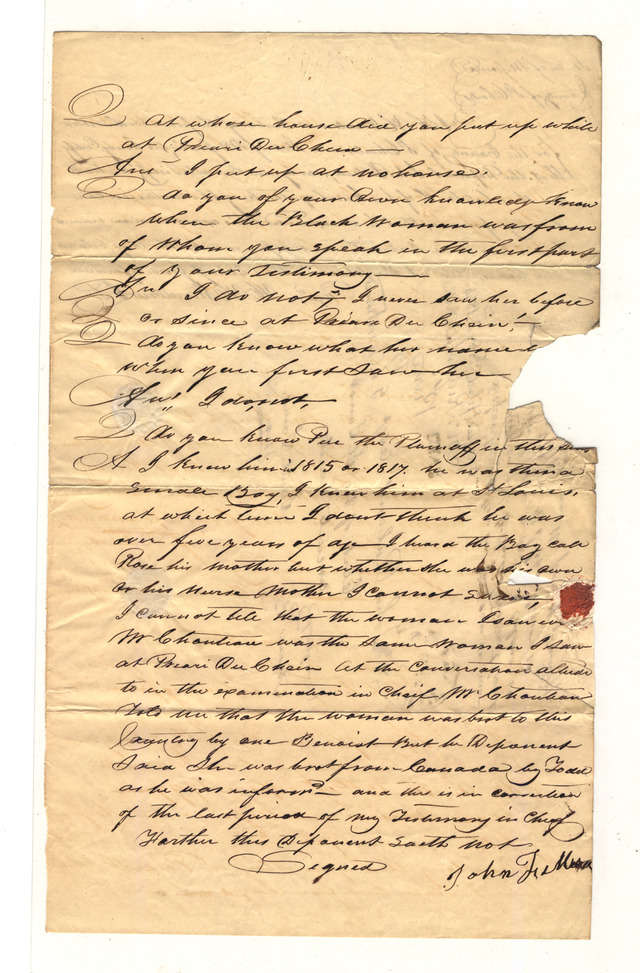 Q At whose house did you put up while
at Prairi Du Chein —
Ans I put up at no house.
Q do you of your Own knowledge know
when the Black Woman was from
of Whom you speak in the first part
of your Testimony —
An I do not, I never saw her before
or since at Prairi Du Chein.
Q do you know what her name
when you first saw her
Ans" I do not,
Q do you know the Plaintiff in this
A I knew him in 1815 or 1817. he was then a
Small Boy, I knew him at St Louis,
at which time I dont think he was
over five years of age I heard the Boy call
Rose his mother but whether she was his own
or his Nurse Mother I cannot
I cannot tell that the woman I saw
Mr Chouteau was the same Woman I saw
at Prairi Du Chein At the Conversation
to in the examination in Cheif Mr Chouteau
Told me that the woman was brot to this
Country by one Benoist But he Deponent
Said She was brot from Canada by Todd
as he was inform'd — and this is in correction
of the last period of my Testimony in Cheif
Farther this Deponent Saith not
Signed John